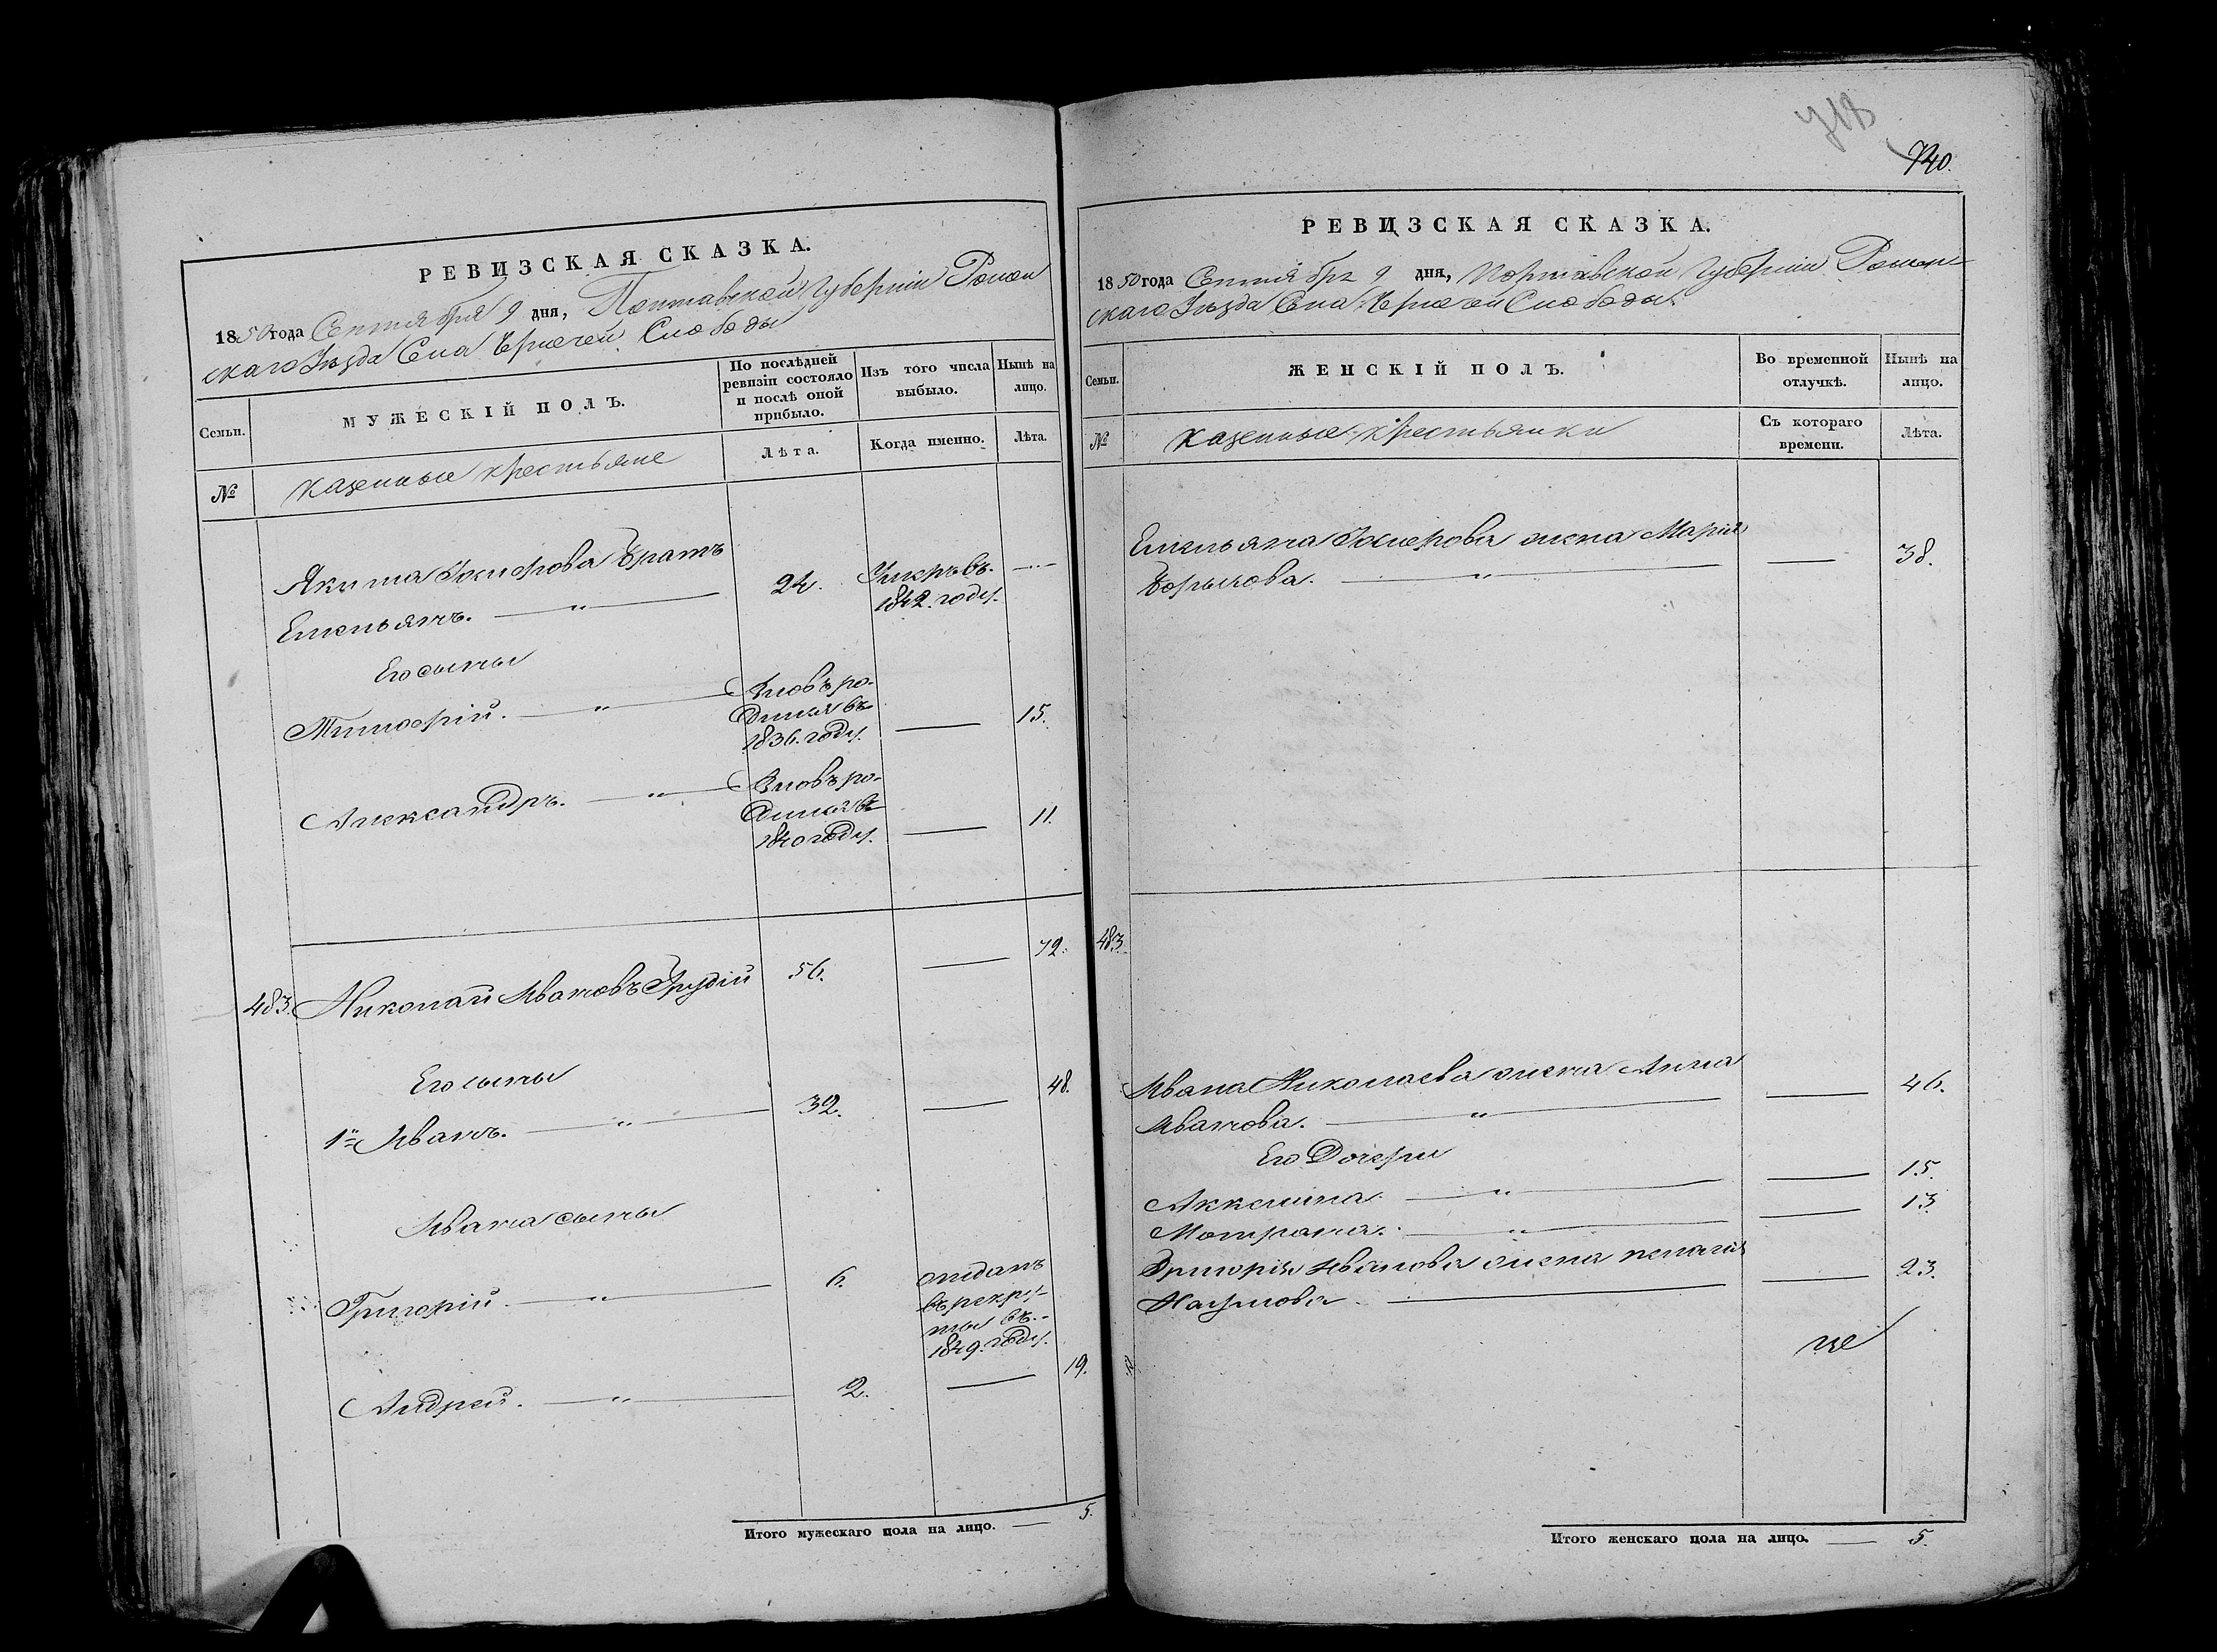 РЕВИЗСКАЯ СКАЗКА.
1850 года Сентября 9 дня, Полтавской Губерніи Ромен
скаго Уѣзда Села Чернечей Слободы
Семьи.
МУЖЕСКІЙ ПОЛЪ.
По послѣдней
ревизіи состояло
и послѣ оной
прибыло.
Изъ того числа
выбыло.
Нынѣ на
лицо.
Лѣта.
Когда именно.
Лѣта.
№
казенные крестьяне
Якима Осипова братъ
Емельянъ. — " —
24.
Умеръ въ
1842. году.
—
Его сыны
Тимофій. — " —
Вновь ро-
дился въ
1836. году.
—
15.
Александръ. — " —
Вновь ро-
дился въ
1840 году.
—
11.
483.
Николай Ивановъ
56.
—
72.
Его сыны
1й Иванъ. — " —
32.
—
48.
Ивана сыны
Григорій. — " —
6.
отданъ
въ рекру-
ты въ
1849. году.
Андрей. — " —
2.
—
19.
Итого мужескаго пола на лицо. — 5.
740.
РЕВИЗСКАЯ СКАЗКА.
1850 года Сентября 9 дня, Полтавской Губерніи Ромен-
скаго Уѣзда Села Чернечей Слободы.
Семьи.
ЖЕНСКІЙ ПОЛЪ.
Во временной
отлучкѣ.
Нынѣ на
лицо.
№
казенные крестьянки
Съ котораго
времени.
Лѣта.
Емельяна Осипова жена Марія
— " —
—
38.
483.
Ивана Николаева жена Анна
Иванова. — " —
—
46.
Его Дочери
Аксинія — " —
—
15.
Мотрона. — " —
—
13.
Григорія Иванова жена Пелагія
Наумова. —
—
23.
Итого женскаго пола на лицо. — 5.